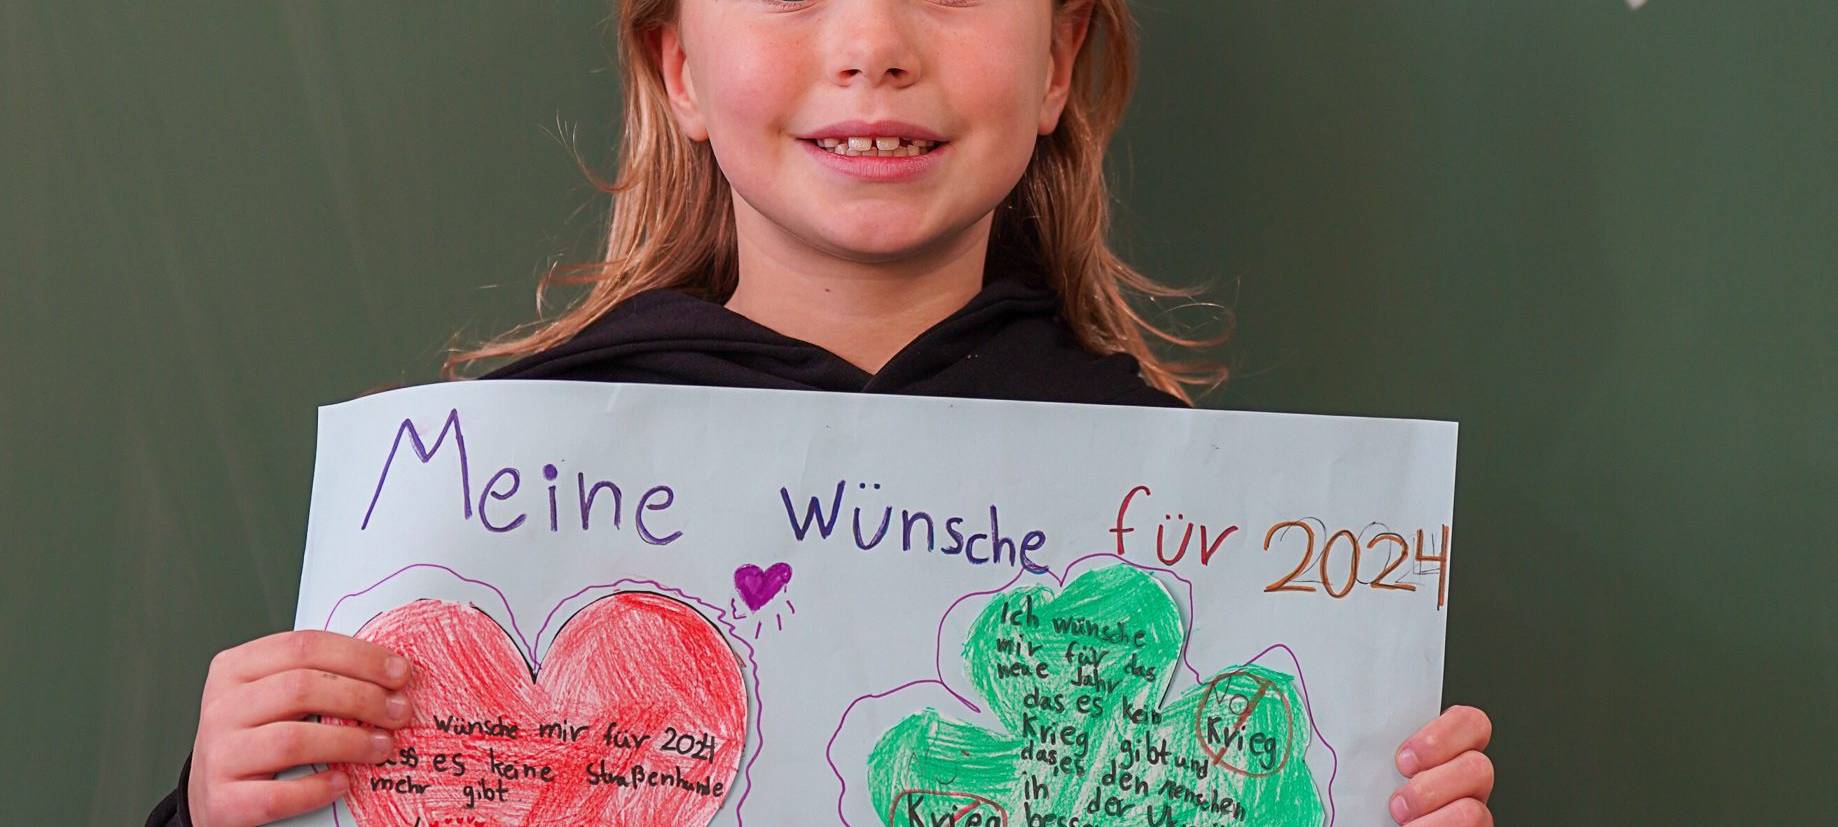 Meine Wünsche für 2024
wünsche mir für 2024
es keine Straßenhunde
mehr gibt
Ich wünsche
mir für das
neue Jahr
das es kein
Krieg gibt und
das es den Menschen
in der
Krieg
Krieg